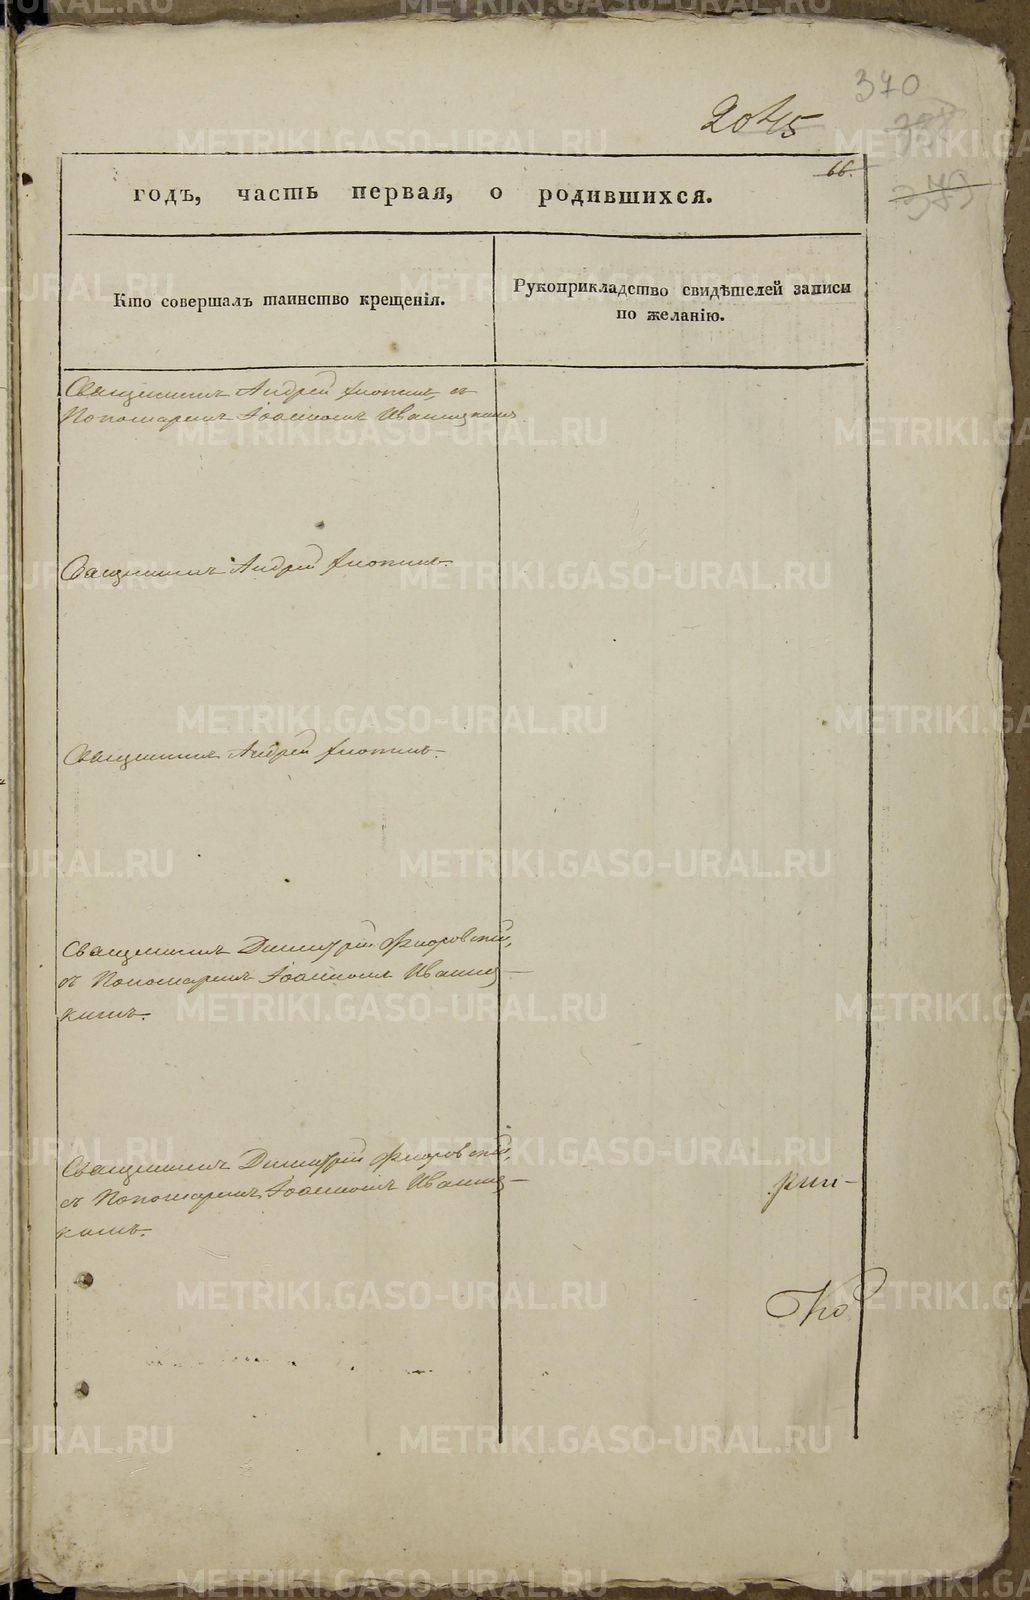 370
2045
66.
373
годъ, часть первая, о родившихся.
Кто совершалъ таинство крещенія.
Рукоприкладство свидѣтелей записи
по желанію.
Священникъ Андрей съ
Пономаремъ Іоанномъ Иваницкимъ
Священникъ Андрей
Священникъ Андрей
Священникъ Димитрій Флоровскій,
съ Пономаремъ Іоанномъ Иваниц-
кимъ.
Священникъ Димитрій Флоровскій,
съ Пономаремъ Іоанномъ Иваниц-
кимъ.
По
METRIKI.GASO-URAL.RU